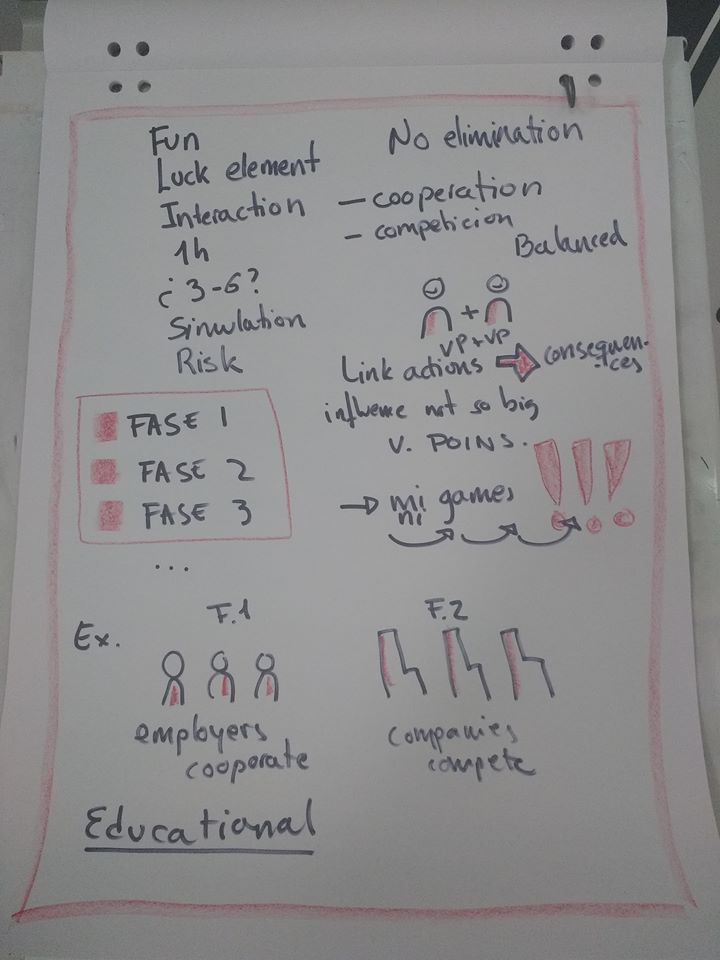 Fun
Luck element
Interaction
1h
¿ 3-6?
Simulation
Risk
No elimination
- cooperation
- competicion
Balanced
+
VP + VP
Link actions ⇒ consequen-
-ces
influence not so big
V. POINS.
→ mi games !!!
ni
FASE 1
FASE 2
FASE 3
...
Ex.
F.1
employers
cooporate
F.2
companies
compete
Educational